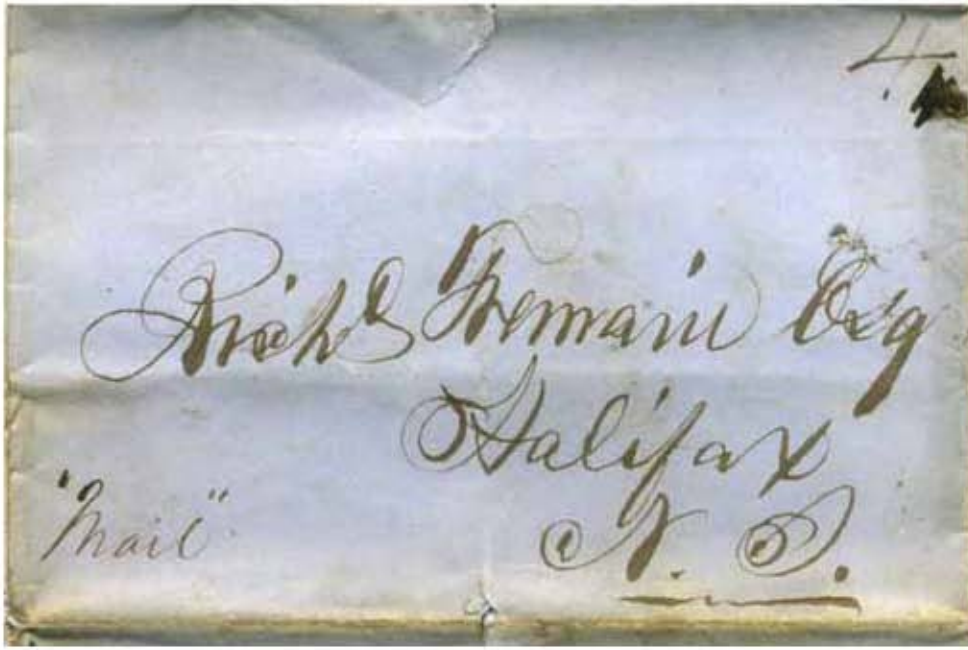 4
Richd Tremain Esq
Halifax
"Mail"
N. S.